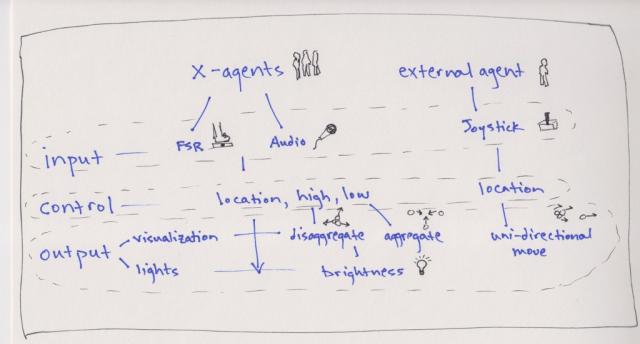 X-agents
external agent
FSR
Audio
Joystick
input
control
location, high, low
location
output
visualization
disaggregate
aggregate
uni-directional
move
lights
brightness